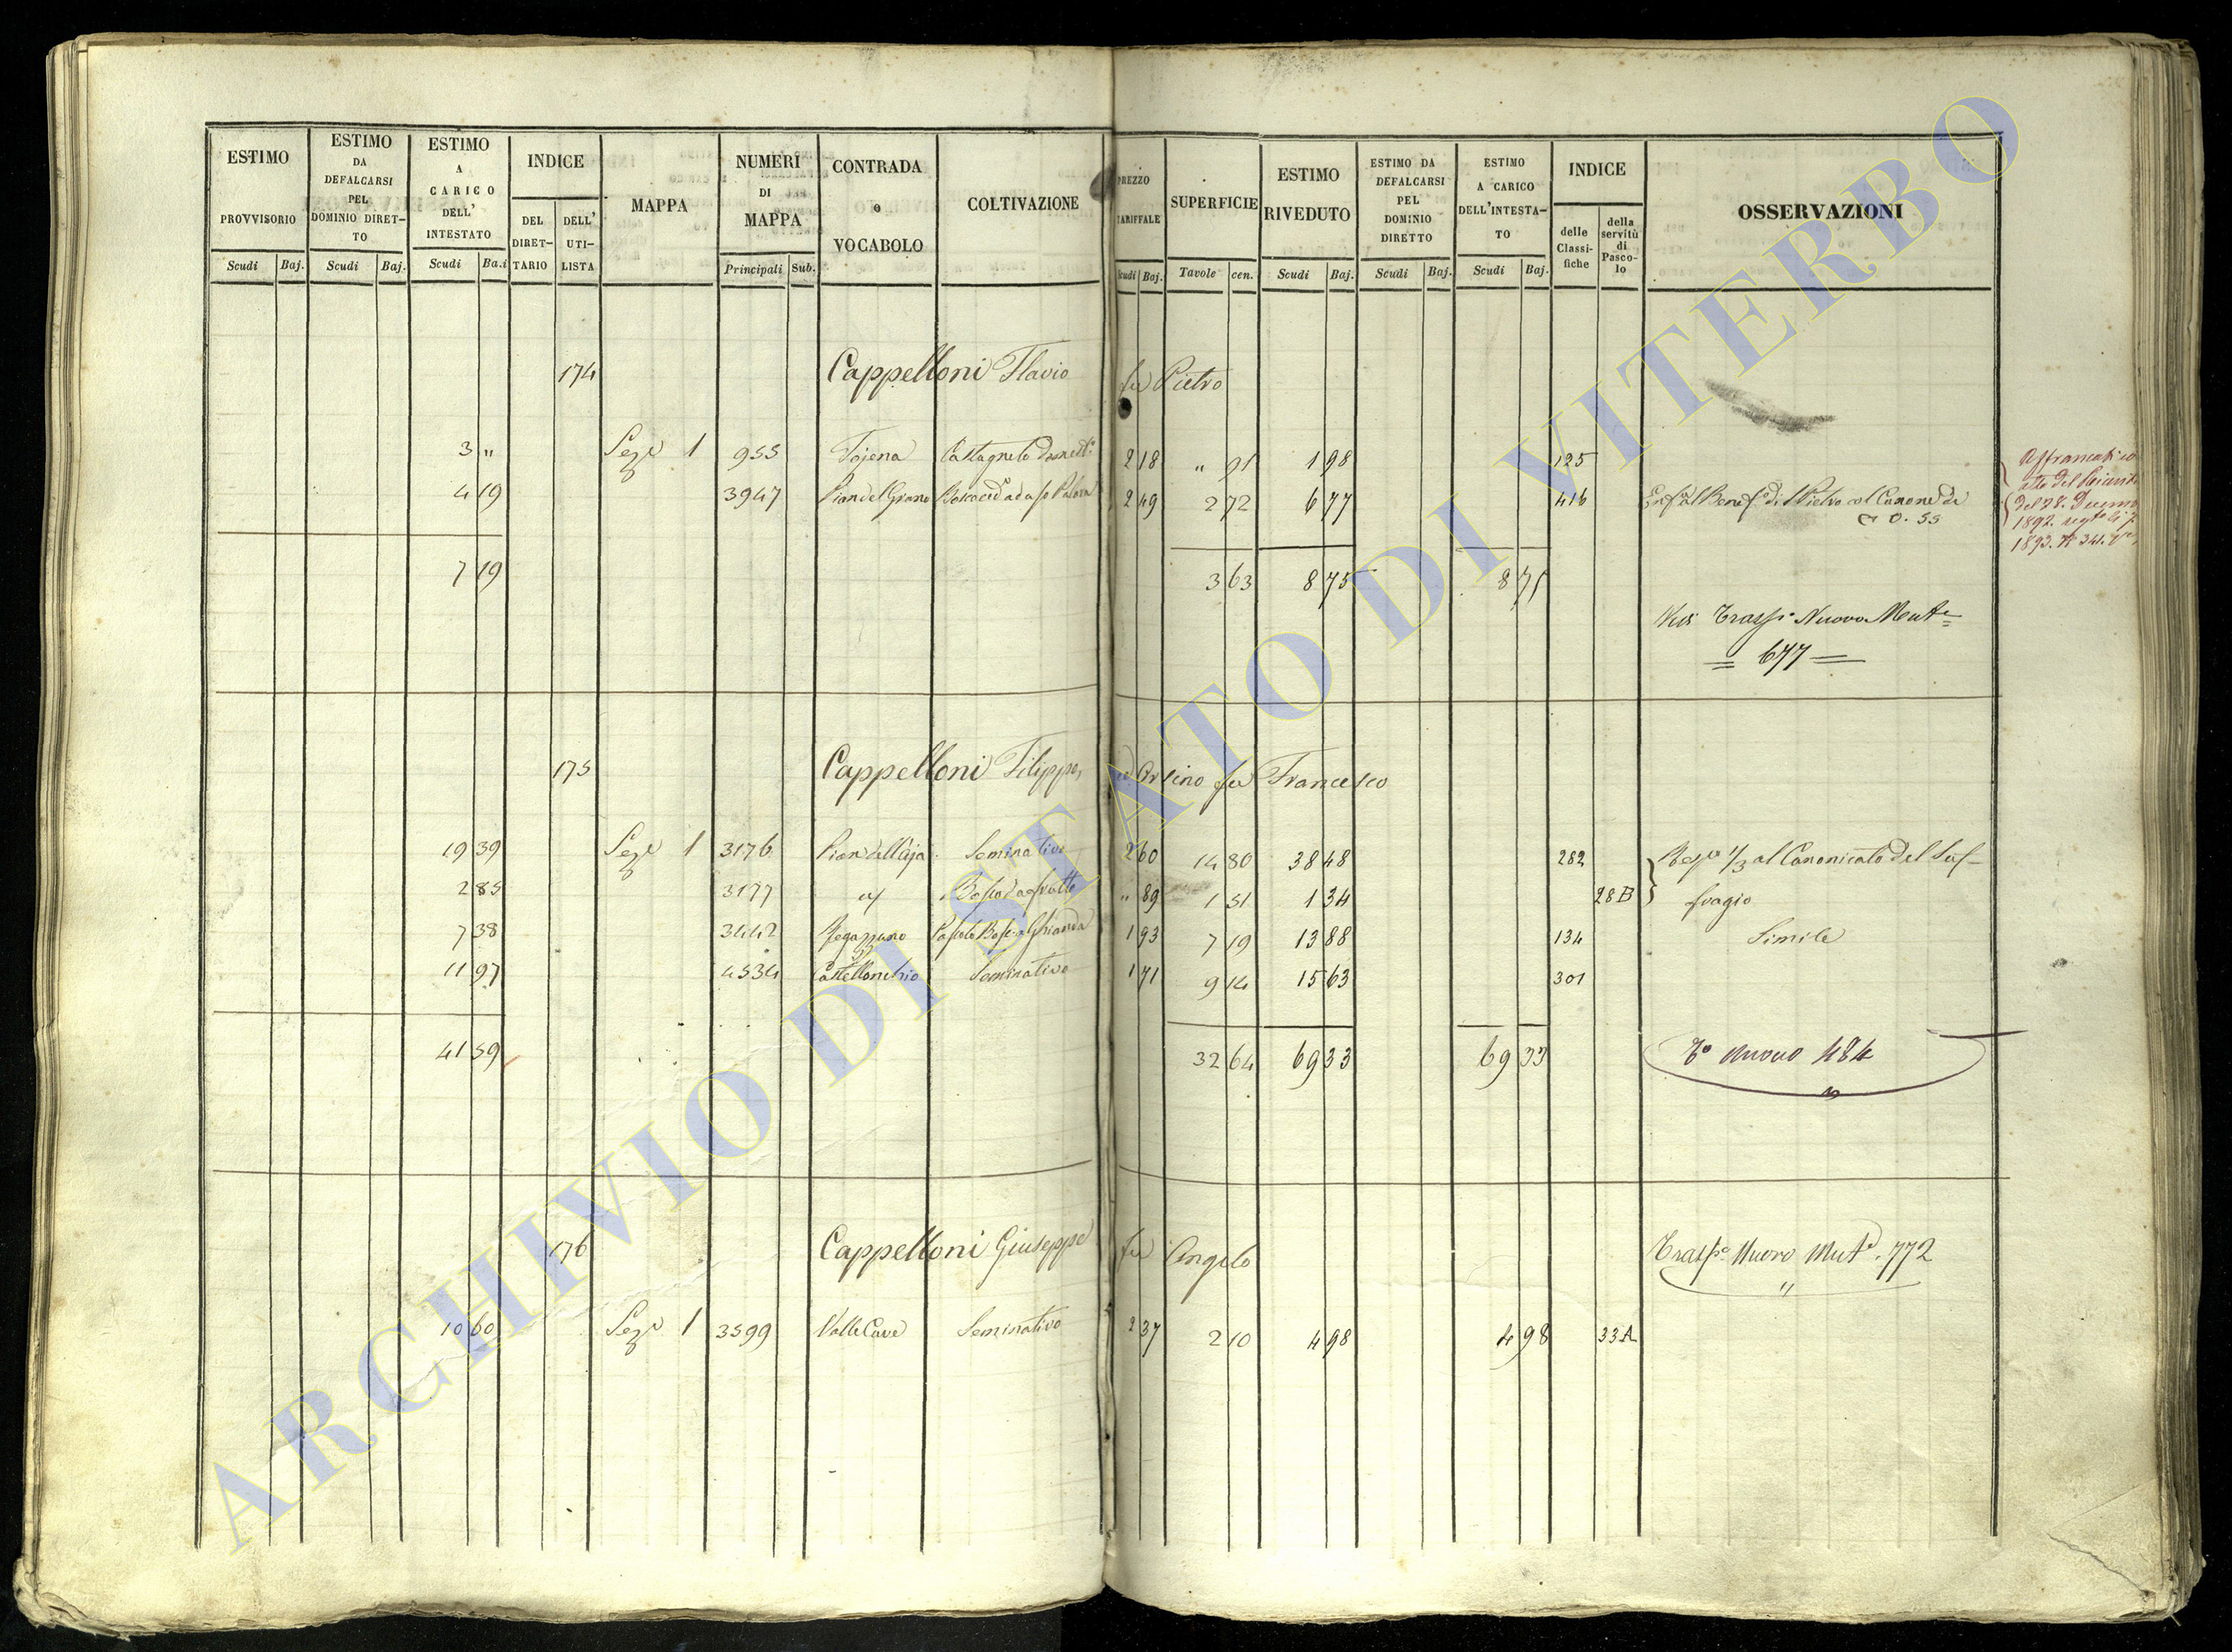 ESTIMO PROVVISORIO Scudi Baj.
ESTIMO DA DEFALCARSI PEL DOMINIO DIRET-TO Scudi Baj.
ESTIMO A CARICO DELL' INTESTATO Scudi Ba.i
INDICE DEL DIRET-TARIO DELL' UTI-LISTA
MAPPA
NUMERI DI MAPPA Principali Sub.
CONTRADA o VOCABOLO
COLTIVAZIONE
PREZZO TARIFFALE Scudi Baj.
SUPERFICIE Tavole cen.
ESTIMO RIVEDUTO Scudi Baj.
ESTIMO DA DEFALCARSI PEL DOMINIO DIRETTO Scudi Baj.
ESTIMO A CARICO DELL'INTESTA-TO Scudi Baj.
INDICE delle Classi-fiche della servitù di Pasco-lo
OSSERVAZIONI
174 Cappelloni Flavio fu Pietro
3 " Seze 1 955 Tojena 2 18 " 91 1 98 125
4 19 3947 Pian del Grano 2 49 2 72 6 77 416
0. 55
1892.
1893. N 341.
7 19 3 63 8 75 8 75
Nuovo
= 677 =
175 Cappelloni Filippo, ed Orsino fu Francesco
19 39 Seze 1 3176 Pian dell'Aja Seminativo 2 60 14 80 38 48 282 1/3 al Canonicato del Suf-
2 85 3177 " 89 1 51 1 34 28 B fragio
7 38 3442 1 93 7 19 13 88 134 Simile
11 97 4534 Castellonchio Seminativo 1 71 9 14 15 63 301
41 59 32 64 69 33 69 33 To nuovo 484
176 Cappelloni Giuseppe fu Angelo Nuovo 772
10 60 Seze 1 3599 Valle Cave Seminativo 2 37 2 10 4 98 4 98 33 A
ARCHIVIO DI STATO DI VITERBO